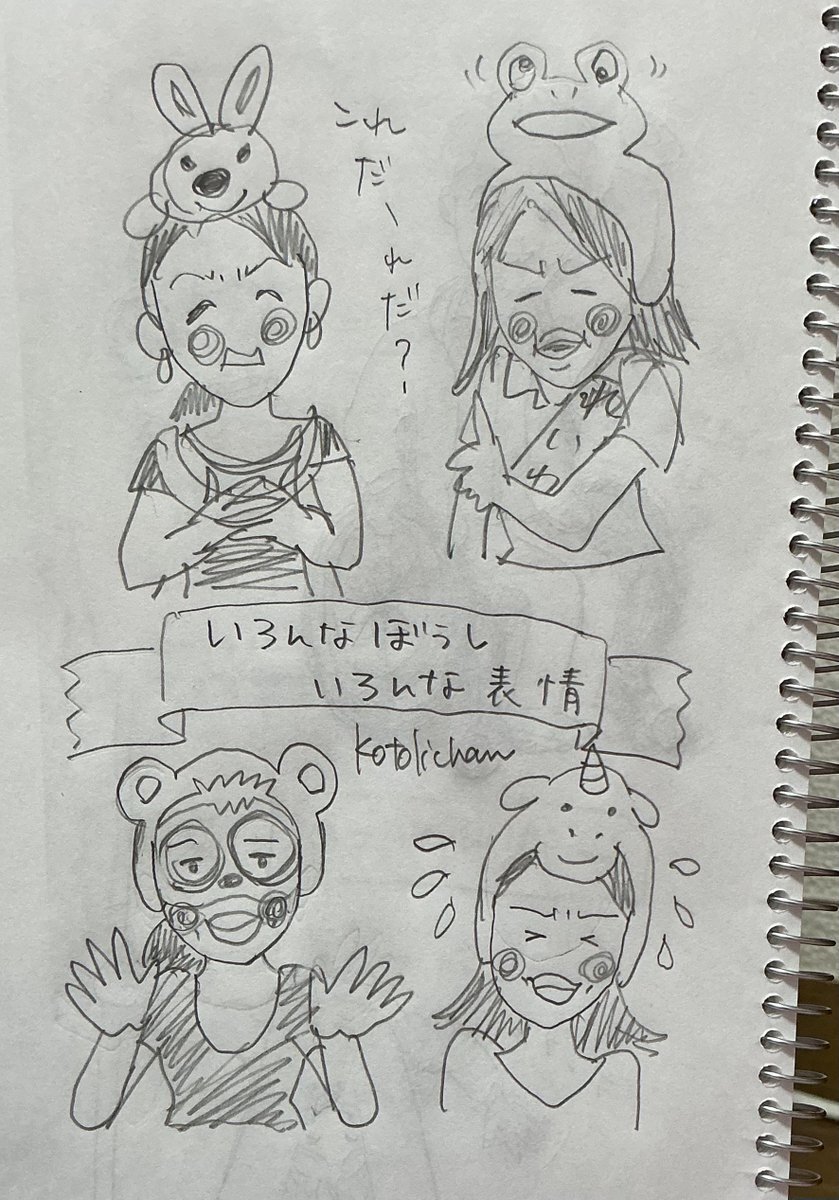 これ
だーれだ?
れいわ
いろんなぼうし
いろんな表情
kotolichan